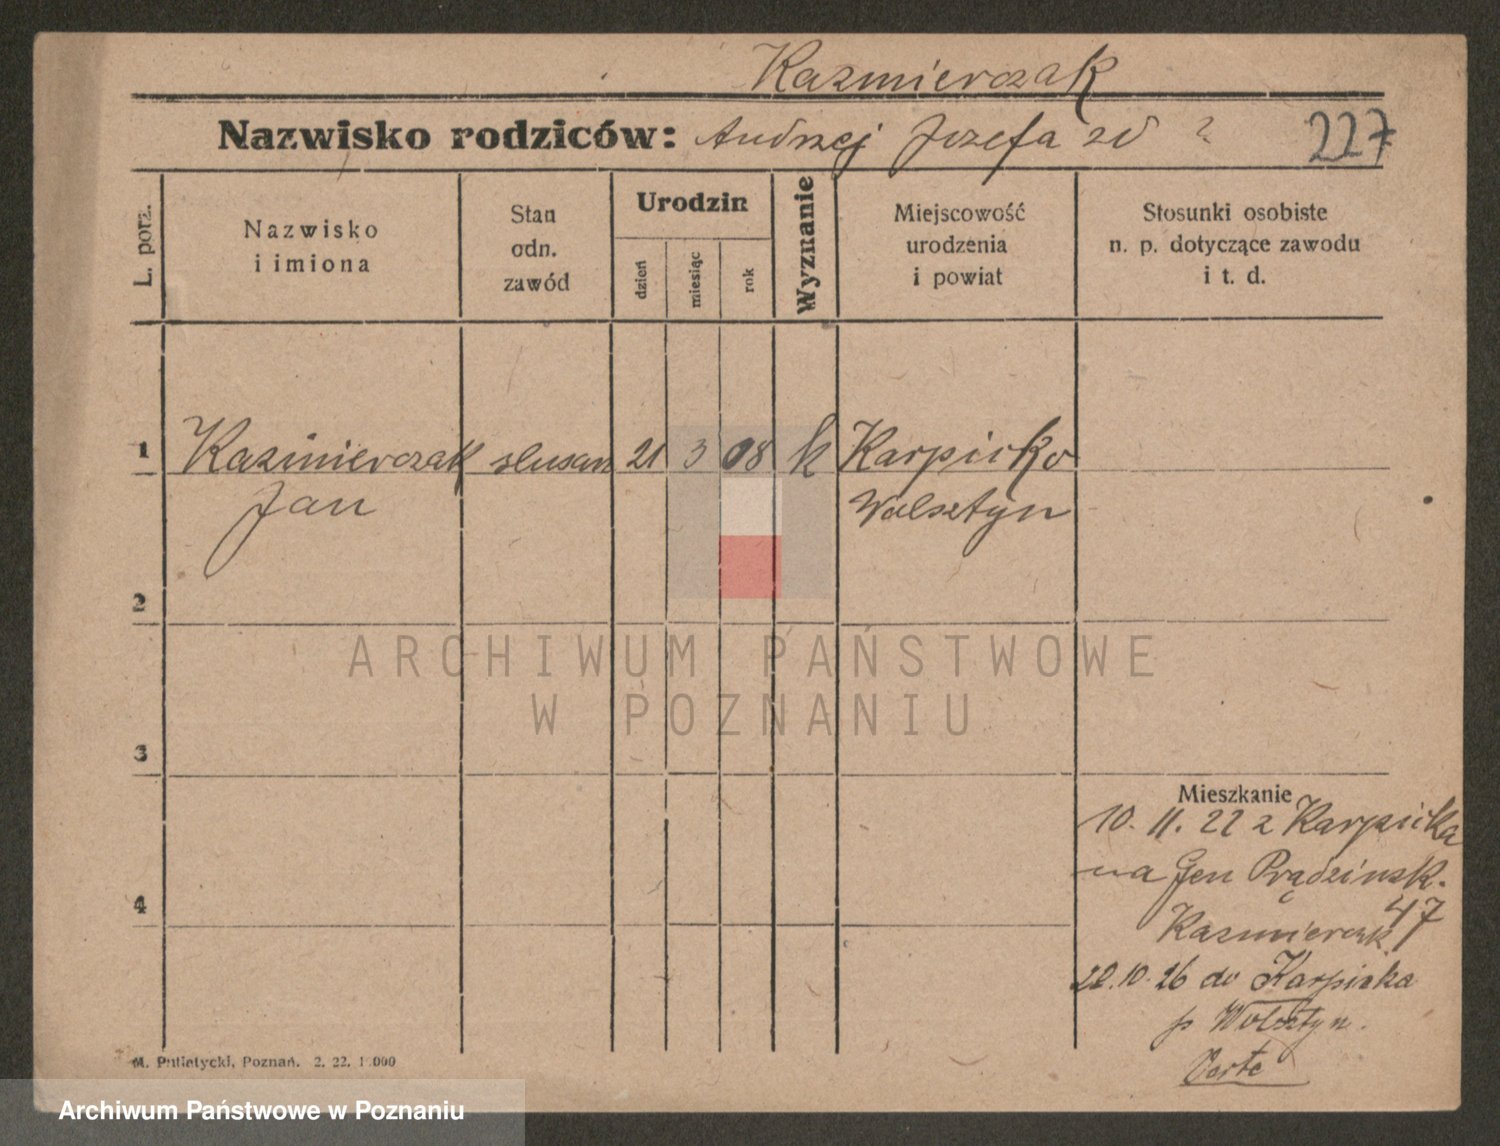 Kazmierczak
Nazwisko rodziców: Andrzej Jozefa zd ?
227
L. porz.
Nazwisko
i imiona
Stan
odn.
zawód
Urodzin
dzień
miesiąc
rok
Wyznanie
Miejscowość
urodzenia
i powiat
Stosunki osobiste
n. p. dotyczące zawodu
i t. d.
1 Kazmierczak slusarz 21 3 08 k Karpicko
Jan Wolsztyn
2
3
4
Mieszkanie
10. 11. 22 z Karpicka
na Gen Prądzinsk.
47
Kazmierczak
22.10.26 do Karpicka
p Wolsztyn.
Verte
M. Putiatycki, Poznań. 2. 22. 1 000
ARCHIWUM PAŃSTWOWE
W POZNANIU
Archiwum Państwowe w Poznaniu